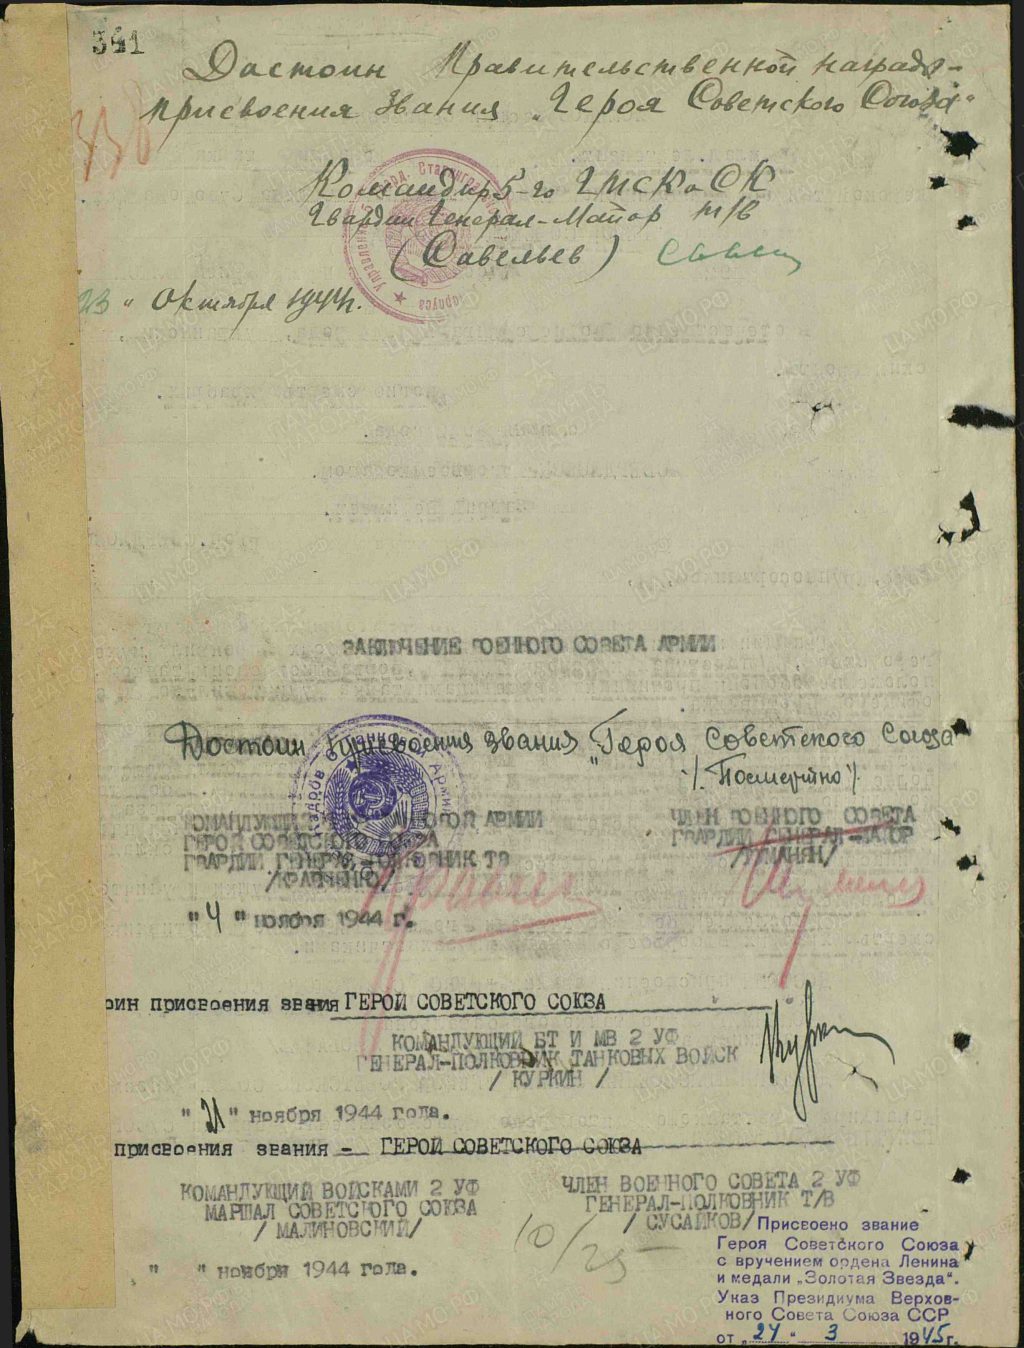 341
338
Достоин Правительственной награды-
присвоения звания „Героя Советского Союза"
Командир 5-го ГТСКоСК
Гвардии Генерал-Майор т/в
(Савельев)
23 " Октября 1944г.
ЗАКЛЮЧЕНИЕ ВОЕННОГО СОВЕТА АРМИИ
Достоин присвоения звания „Героя Советского Союза"
/Посмертно/.
КОМАНДУЮЩИЙ ОЙ АРМИИ
ГЕРОЙ СОВЕТСКОГО СОЮЗА
ГВАРДИИ ГЕНЕРАЛ-ПОЛКОВНИК ТВ
/КРАВЧЕНКО/
"4" ноября 1944 г.
ЧЛЕН ВОЕННОГО СОВЕТА
ГВАРДИИ ГЕНЕРАЛ-МАЙОР
/ТУМАНЯН/
оин присвоения звания ГЕРОЙ СОВЕТСКОГО СОЮЗА
КОМАНДУЮЩИЙ БТ И МВ 2 УФ
ГЕНЕРАЛ-ПОЛКОВНИК ТАНКОВЫХ ВОЙСК
/ КУРКИН /
"21" ноября 1944 года.
присвоения звания - ГЕРОЙ СОВЕТСКОГО СОЮЗА
КОМАНДУЮЩИЙ ВОЙСКАМИ 2 УФ
МАРШАЛ СОВЕТСКОГО СОЮЗА
/ МАЛИНОВСКИЙ/
" " ноября 1944 года.
ЧЛЕН ВОЕННОГО СОВЕТА 2 УФ
ГЕНЕРАЛ-ПОЛКОВНИК Т/В
/ СУСАЙКОВ/
10/25
Присвоено звание
Героя Советского Союза
с вручением ордена Ленина
и медали „Золотая Звезда".
Указ Президиума Верхов-
ного Совета Союза ССР
от „24" 3 1945г.